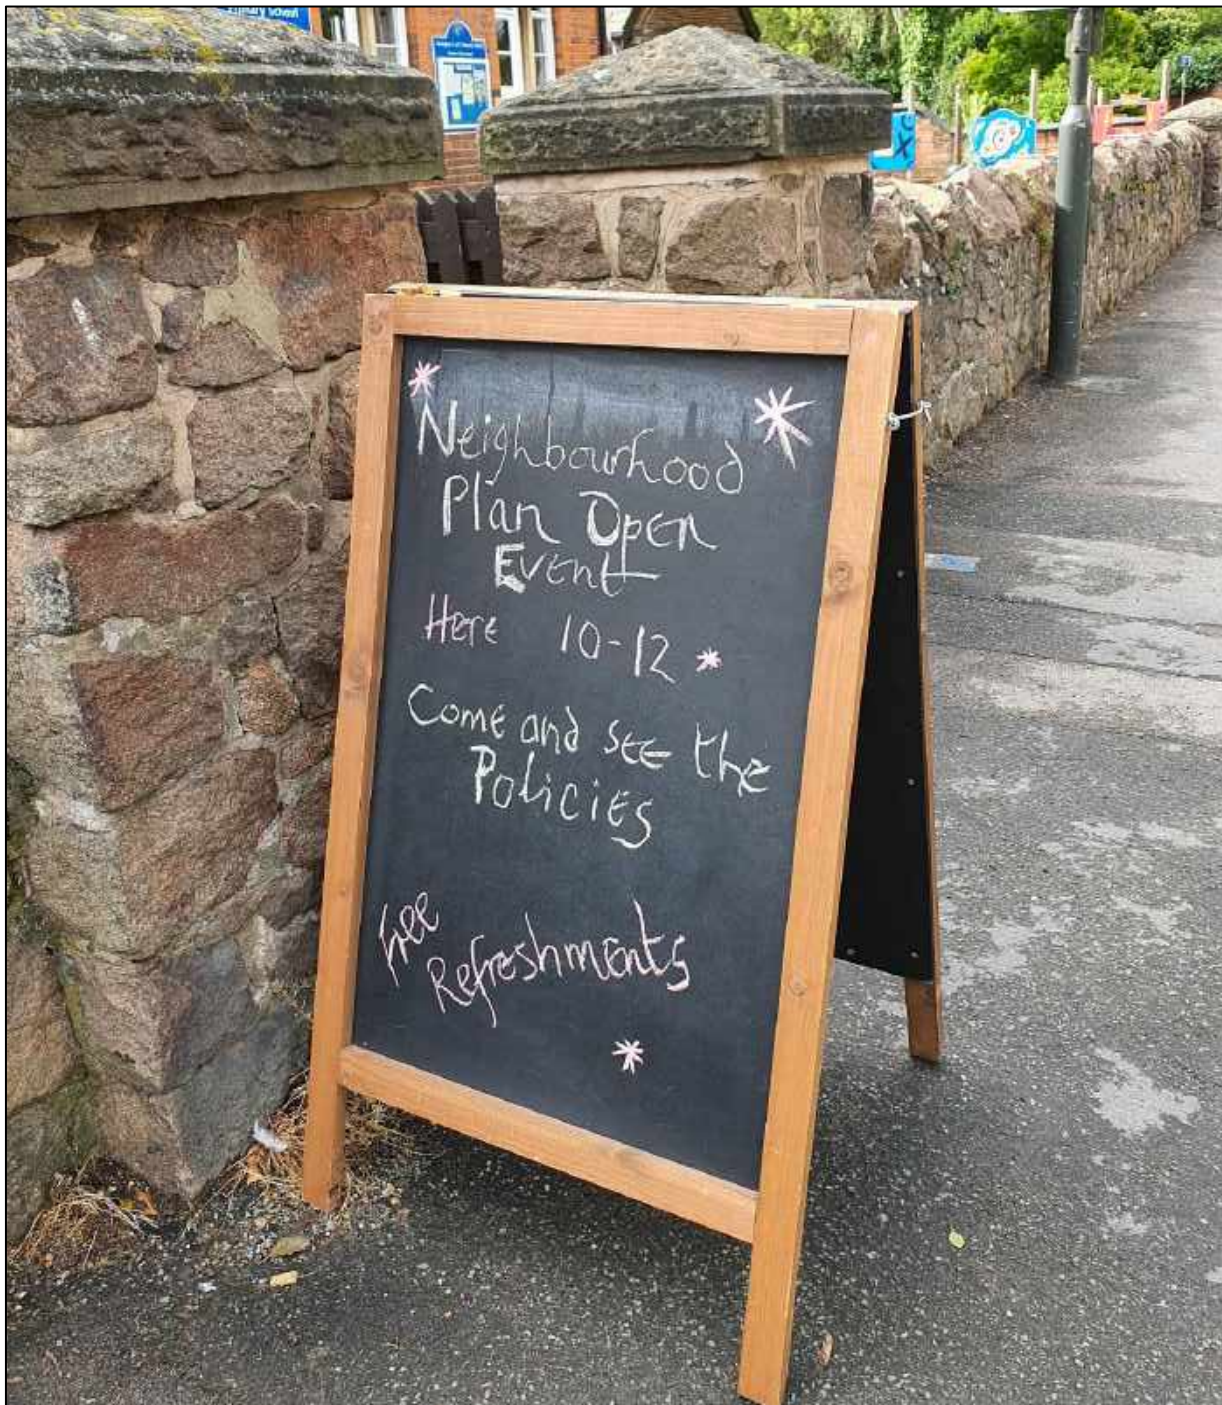 Neighbourhood
Plan Open
Event
Here 10-12
Come and see the
Policies
Free
Refreshments